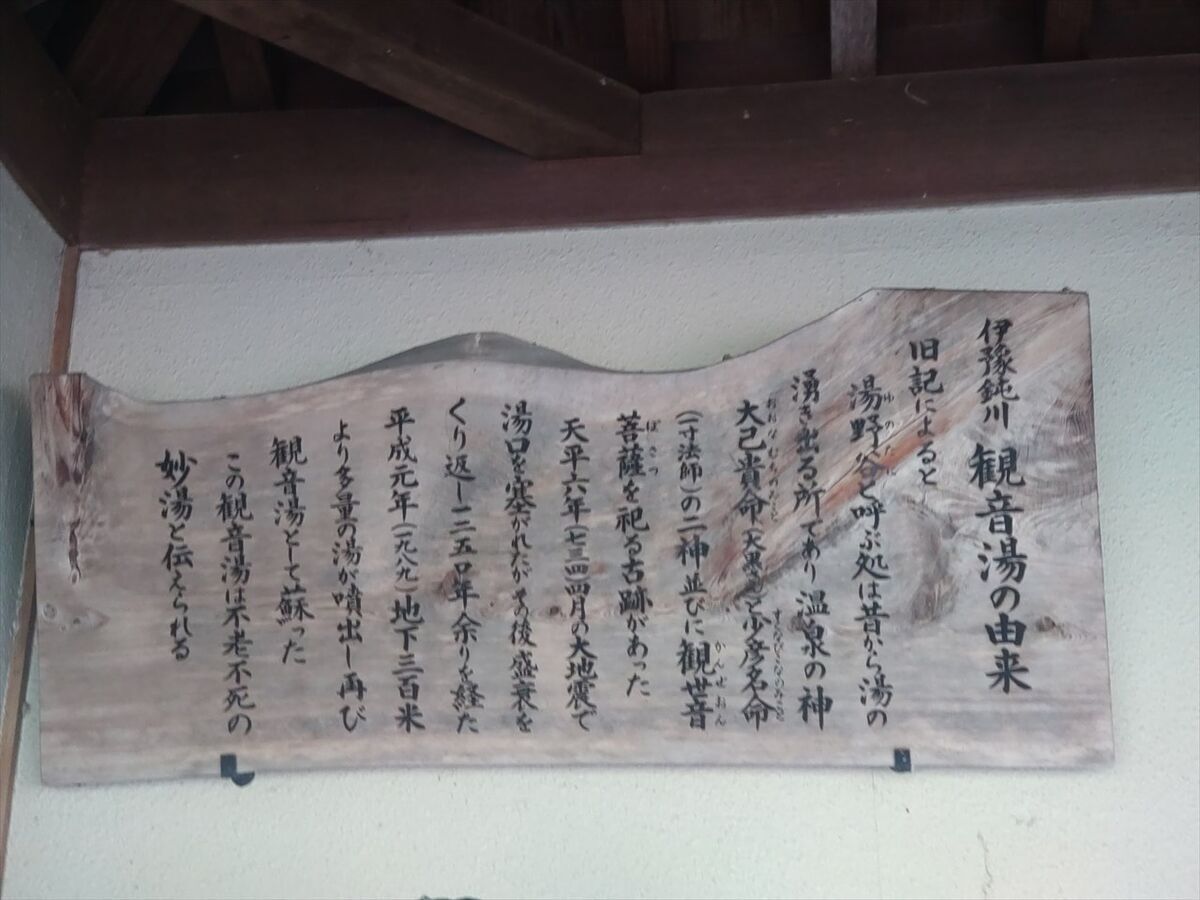 伊豫鈍川 観音湯の由来
旧記によると
湯野谷と呼ぶ処は昔から湯の
湧き出る所であり温泉の神
大己貴命(大黒さま)と少彦名命
(一寸法師)の二神並びに観世音
菩薩を祀る古跡があった
天平六年(七三四)四月の大地震で
湯口を塞がれたがその後盛衰を
くり返し一二五〇年余りを経た
平成元年(一九八九)地下三百米
より多量の湯が噴出し再び
観音湯として蘇った
この観音湯は不老不死の
妙湯と伝えられる